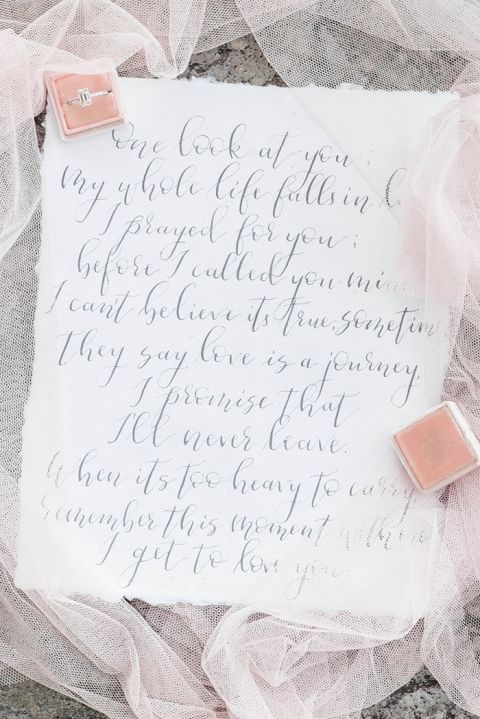 One look at you;
my whole life falls in
I prayed for you;
before I called you mine.
I can't believe its true, sometimes
they say love is a journey,
I promise that
I'll never leave.
When its too heavy to carry
remember this moment with me
I get to love you.